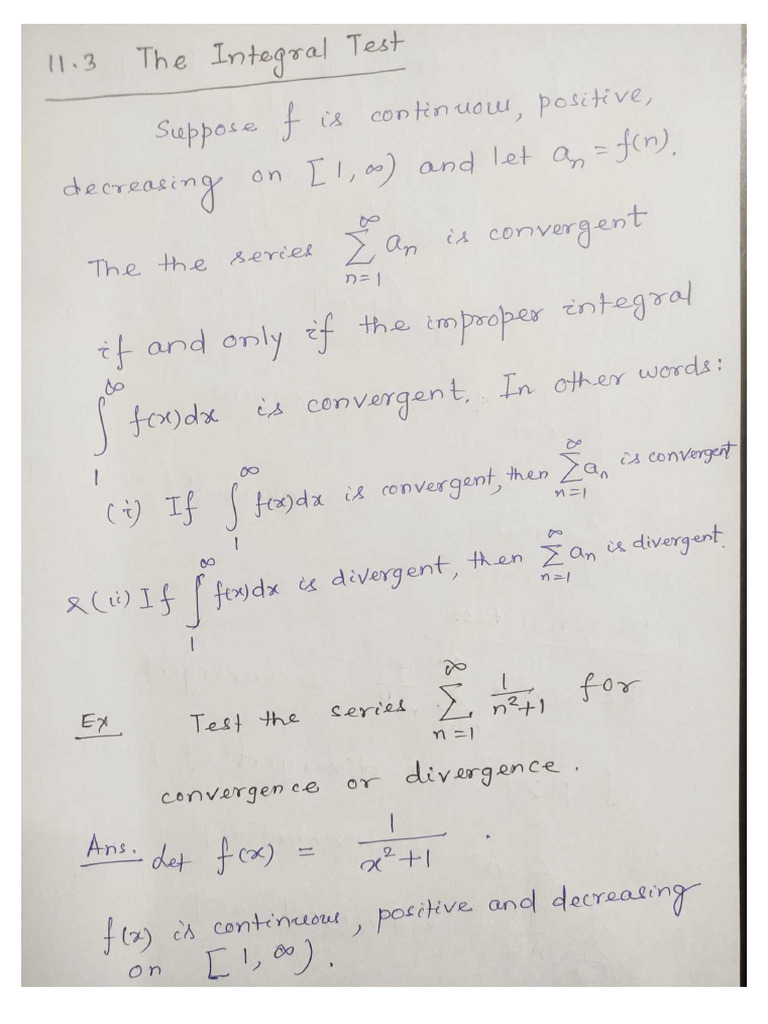 11.3 The Integral Test
Suppose f is continuous, positive,
decreasing on [1, ∞) and let aₙ = f(n).
The the series ∑_{n=1}^{∞} aₙ is convergent
if and only if the improper integral
∫_{1}^{∞} f(x)dx is convergent. In other words:
(i) If ∫_{1}^{∞} f(x)dx is convergent, then ∑_{n=1}^{∞} aₙ is convergent
& (ii) If ∫_{1}^{∞} f(x)dx is divergent, then ∑_{n=1}^{∞} aₙ is divergent.
Ex Test the series ∑_{n=1}^{∞} 1/(n²+1) for
convergence or divergence.
Ans. Let f(x) = 1/(x²+1) .
f(x) is continuous, positive and decreasing
on [1, ∞).